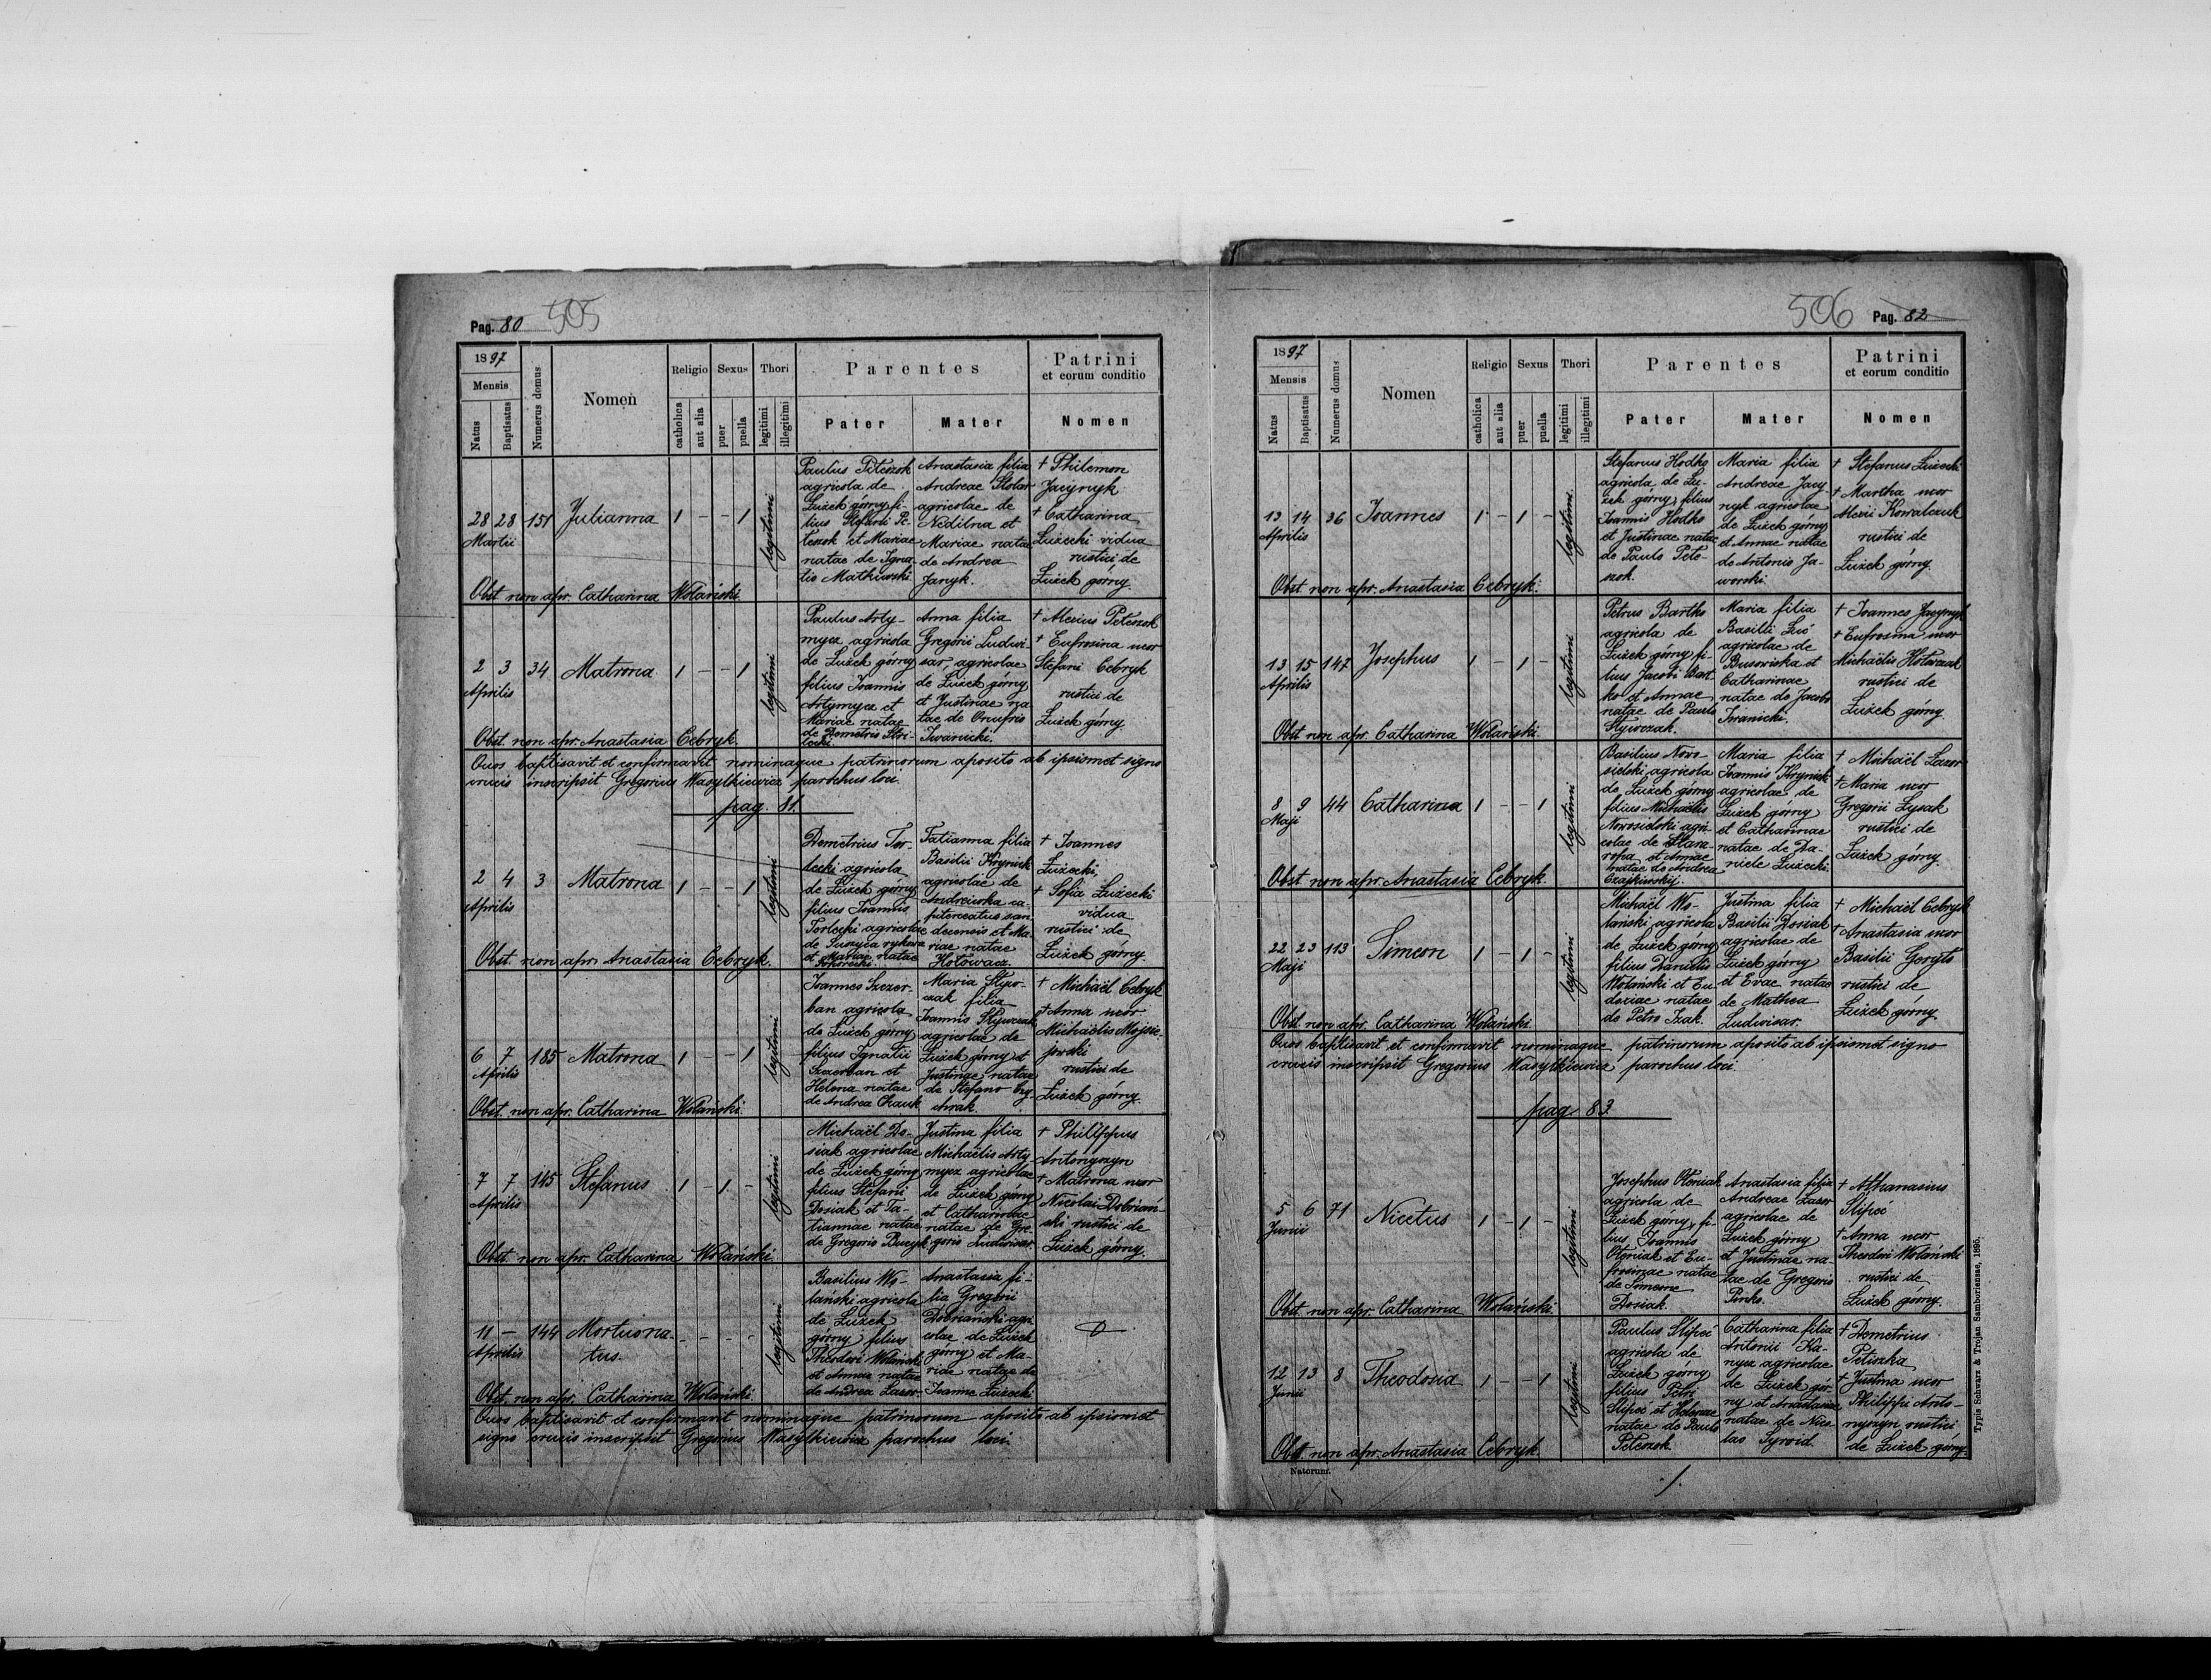 Pag. 80 505
1897
Mensis
Natus
Baptisatus
Numerus domus
Nomen
Religio
catholica
aut alia
Sexus
puer
puella
Thori
legitimi
illegitimi
Parentes
Pater
Mater
Patrini
et eorum conditio
Nomen
28 28 151 Julianna 1 - - 1 legitimi
Martii
Paulus Peteszok
agricola de
Łużek górny fi-
lius Stefani Pe-
teszok et Mariae
natae de Igna-
tio Matkiwski.
Anastasia filia
Andreae Stolar
agricolae de
Nedilna et
Mariae natae
de Andrea
Janyk.
† Philemon
Jacynyk
† Catharina
Łużecki vidua
rustici de
Łużek górny.
Obst. non apr. Catharina Wolański.
2 3 34 Matrona 1 - - 1 legitimi
Aprilis
Paulus Arty-
mycz agricola
de Łużek górny
filius Joannis
Artymycz et
Mariae natae
de Demetrio Stri-
lecki.
Anna filia
Gregorii Ludwi-
sar, agricolae
de Łużek górny
et Justinae na-
tae de Onufrio
Iwanicki.
† Alexius Peteszok
† Eufrosina uxor
Stefani Cebryk
rustici de
Łużek górny
Obst. non apr. Anastasia Cebryk.
Quos baptisavit et confirmavit nominaque patrinorum aposito ab ipsismet signo
crucis inscripsit Gregorius Wasylkiewicz parochus loci.
pag. 81.
2 4 3 Matrona 1 - - 1 legitimi
Aprilis
Demetrius Tor-
lecki agricola
de Łużek górny
filius Joannis
Torlecki agricolae
de Suszyca rykowa
et Mariae natae
Tatianna filia
Basilii Krynick
agricolae de
Andrewka ca-
pitoreatus san-
decensis et Ma-
riae natae
Hołowacz.
† Joannes
Łużecki,
† Sofia Łużecki
vidua
rustici de
Łużek górny.
Obst. non apr. Anastasia Cebryk.
6 7 185 Matrona 1 - - 1 legitimi
Aprilis
Joannes Szczer-
ban agricola
de Łużek górny
filius Ignatii
Szczerban et
Helena natae
de Andrea Chauk
Maria Styw-
czak filia
Joannis Stywczak
agricolae de
Łużek górny et
Justinae natae
de Stefano
† Michaël Cebryk
† Anna uxor
Michaëlis Mojsie-
jowski
rustici de
Łużek górny.
Obst. non apr. Catharina Wolański.
7 7 145 Stefanus 1 - 1 - legitimi
Aprilis
Michaël Do-
siak agricolae
de Łużek górny
filius Stefani
Dosiak et Ta-
tiannae natae
de Gregorio Bucyk
Justina filia
Michaëlis Arty-
mycz agricolae
de Łużek górny
et Catharinae
natae de Gre-
gorio Ludwisar.
† Philippus
Antonyszyn
† Matrona uxor
Nicolai Dobriań-
ski rustici de
Łużek górny.
Obst. non apr. Catharina Wolański.
11 - 144 Mortuona- - - - - legitimi
Aprilis tus.
Basilius Wo-
lański agricola
de Łużek
górny filius
Theodori Wolański
et Annae natae
de Andrea Lazor
Anastasia fi-
lia Gregorii
Dobriański agri-
colae de Łużek
górny et Ma-
riae natae de
Joanne Łużecki
Obst. non apr. Catharina Wolański.
Quos baptisavit et confirmavit nominaque patrinorum aposito ab ipsismet
signo crucis inscripsit Gregorius Wasylkiewicz parochus loci.
506 Pag. 82
1897
Mensis
Natus
Baptisatus
Numerus domus
Nomen
Religio
catholica
aut alia
Sexus
puer
puella
Thori
legitimi
illegitimi
Parentes
Pater
Mater
Patrini
et eorum conditio
Nomen
13 14 36 Joannes 1 - 1 - legitimi.
Aprilis
Stefanus Hodko
agricola de Łu-
żek górny, filius
Joannis Hodko
et Justinae natae
de Paulo Pete-
szok.
Maria filia
Andreae Jacy-
nyk agricolae
de Łużek górny
et Annae natae
de Antonio Ja-
worski.
† Stefanus Łużecki
† Martha uxor
Alexii Kowalczuk
rustici de
Łużek górny.
Obst. non apr. Anastasia Cebryk.
13 15 147 Josephus 1 - 1 - legitimi
Aprilis
Petrus Bartko
agricola de
Łużek górny fi-
lius Jacobi Bart-
ko et Annae
natae de Paulo
Stywczak.
Maria filia
Basilii Łuć
agricolae de
Busowiska et
Catharinae
natae de Jacobo
Iwanicki.
† Joannes Jacynyk
† Eufrosina uxor
Michaëlis Hołowczak
rustici de
Łużek górny
Obst. non apr. Catharina Wolański.
8 9 44 Catharina 1 - - 1 legitimi
Maji
Basilius Nowo-
sielski agricola
de Łużek górny
filius Michaëlis
Nowosielski agri-
colae de Stara-
ropa et Annae
natae de Andrea
Czajkiwskij.
Maria filia
Joannis Krynick
agricolae de
Łużek górny
et Catharinae
natae de Da-
niele Łużecki.
† Michaël Lazor
† Maria uxor
Gregorii Łysak
rustici de
Łużek górny.
Obst. non apr. Anastasia Cebryk.
22 23 113 Simeon 1 - 1 - legitimi
Maji
Michaël Wo-
lański agricola
de Łużek górny
filius Danielis
Wolański et Eu-
doxiae natae
de Petro Izak.
Justina filia
Basilii Dosiak
agricolae de
Łużek górny
et Evae natae
de Mathea
Ludwisar.
† Michaël Cebryk
† Anastasia uxor
Basilii Geryto
rustici de
Łużek górny
Obst. non apr. Catharina Wolański.
Quos baptisavit et confirmavit nominaque patrinorum aposito ab ipsismet signo
crucis inscripsit Gregorius Wasylkiewicz parochus loci.
pag 83
5 6 71 Nicetus 1 - 1 - legitimi
Junii
Josephus Oleniak
agricola de
Łużek górny, fi-
lius Joannis
Oleniak et Eu-
frosinae natae
de Simeone
Dosiak.
Anastasia filia
Andreae Lazor
agricolae de
Łużek górny
et Justinae na-
tae de Gregorio
Pinko.
† Athanasius
Slipeć
† Anna uxor
Theodori Wolański
rustici de
Łużek górny.
Obst. non apr. Catharina Wolański.
12 13 8 Theodosia 1 - - 1 legitimi
Junii
Paulus Slipeć
agricola de
Łużek górny
filius Petri
Slipeć et Helenae
natae de Paulo
Peteszok.
Catharina filia
Antonii Ka-
nycz agricolae
de Łużek gór-
ny et Anastasiae
natae de Nico-
lao Syroid.
† Demetrius
Petiszka
† Justina uxor
Philippi Anto-
nyszyn rustici
de Łużek górny.
Obst. non apr. Anastasia Cebryk.
Natorum.
Typis Schwarz & Trojan Samboriensae, 1895.